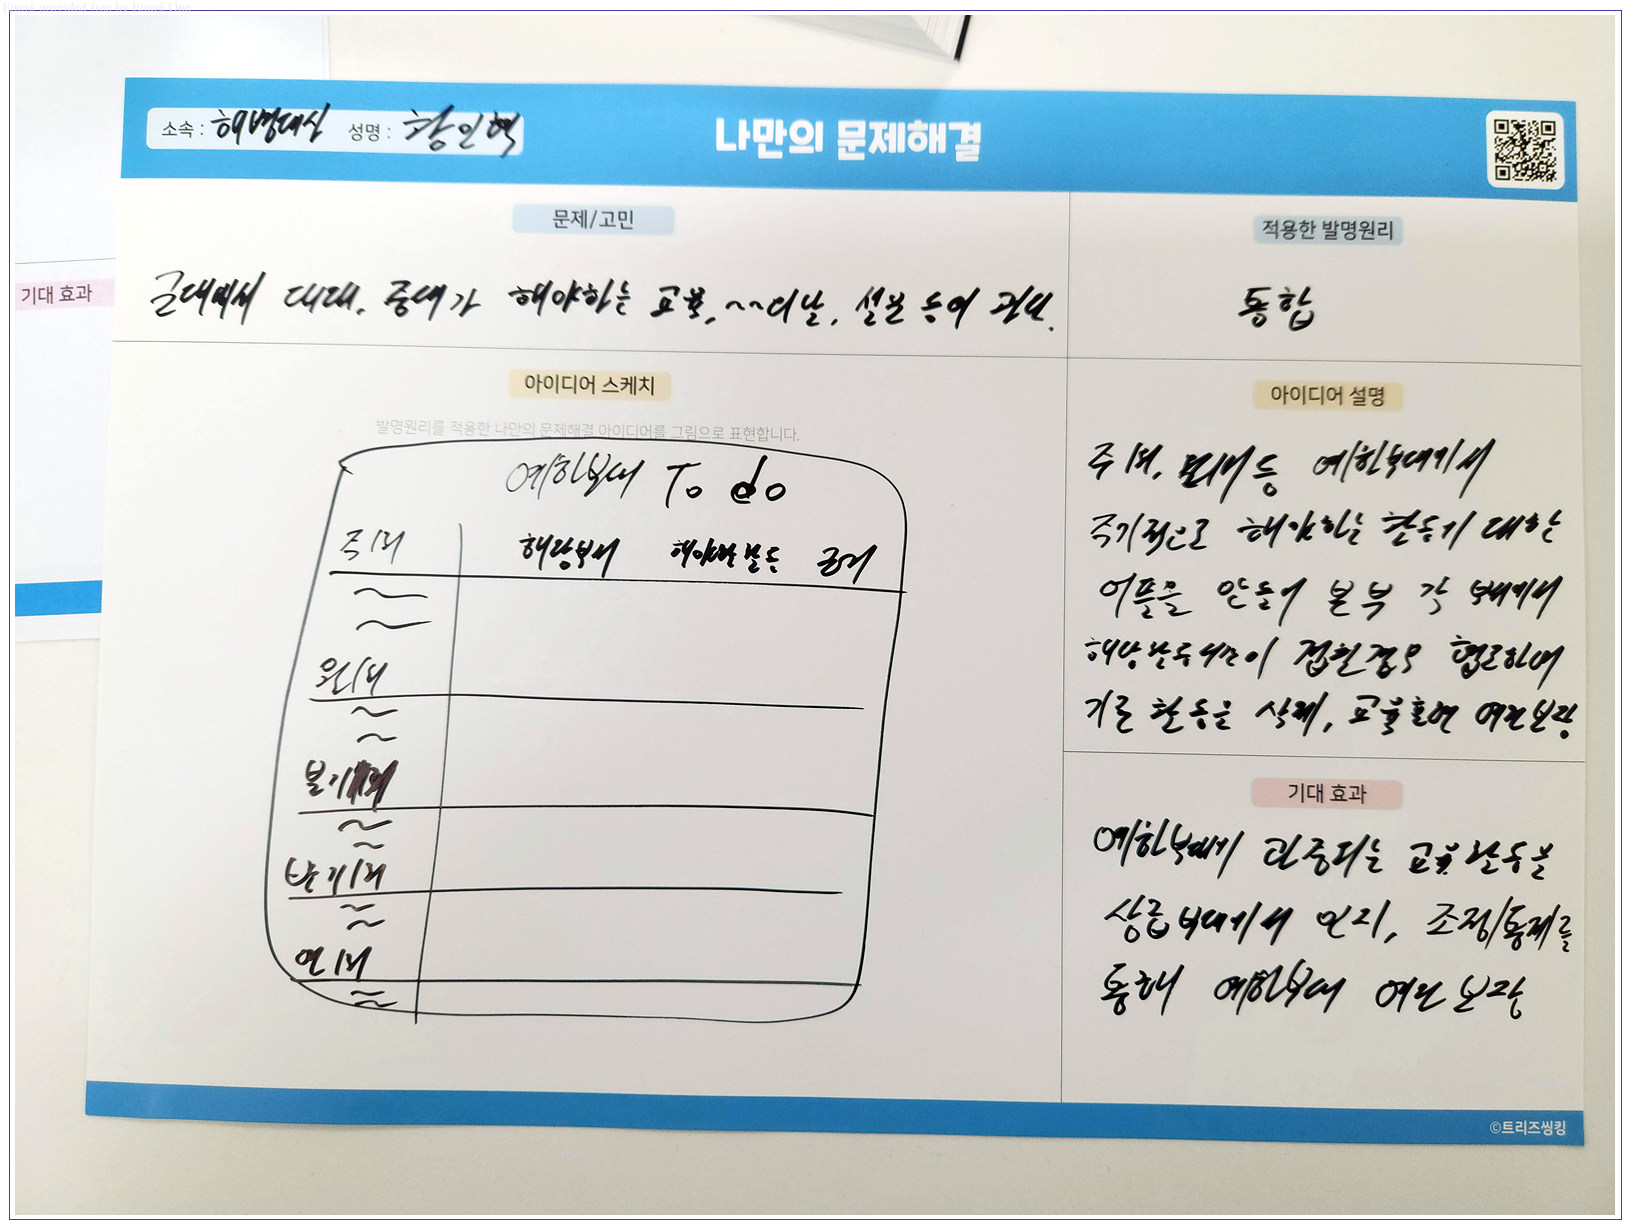 소속 : 해병대실 성명 : 황인혁
나만의 문제해결
문제/고민
군대에서 대대, 중대가 해야하는 교육, ~~의날, 설문 등이 과다.
적용한 발명원리
통합
아이디어 스케치
발명원리를 적용한 나만의 문제해결 아이디어를 그림으로 표현합니다.
예하부대 To do
주1회 해당부서 해야할 활동 근거
월1회
분기1회
반기1회
연1회
아이디어 설명
주1회, 등 예하부대에서
주기적으로 해야하는 활동에 대한
어플을 만들어 본부 각 부서에서
해당활동내용이 겹칠경우 협조하여
기존 활동을 삭제, 교육훈련 여건보장
기대 효과
예하부대에 과중되는 교육활동을
상급부대에서 인지, 조정/통제를
통해 예하부대 여건보장
©트리즈씽킹
기대 효과